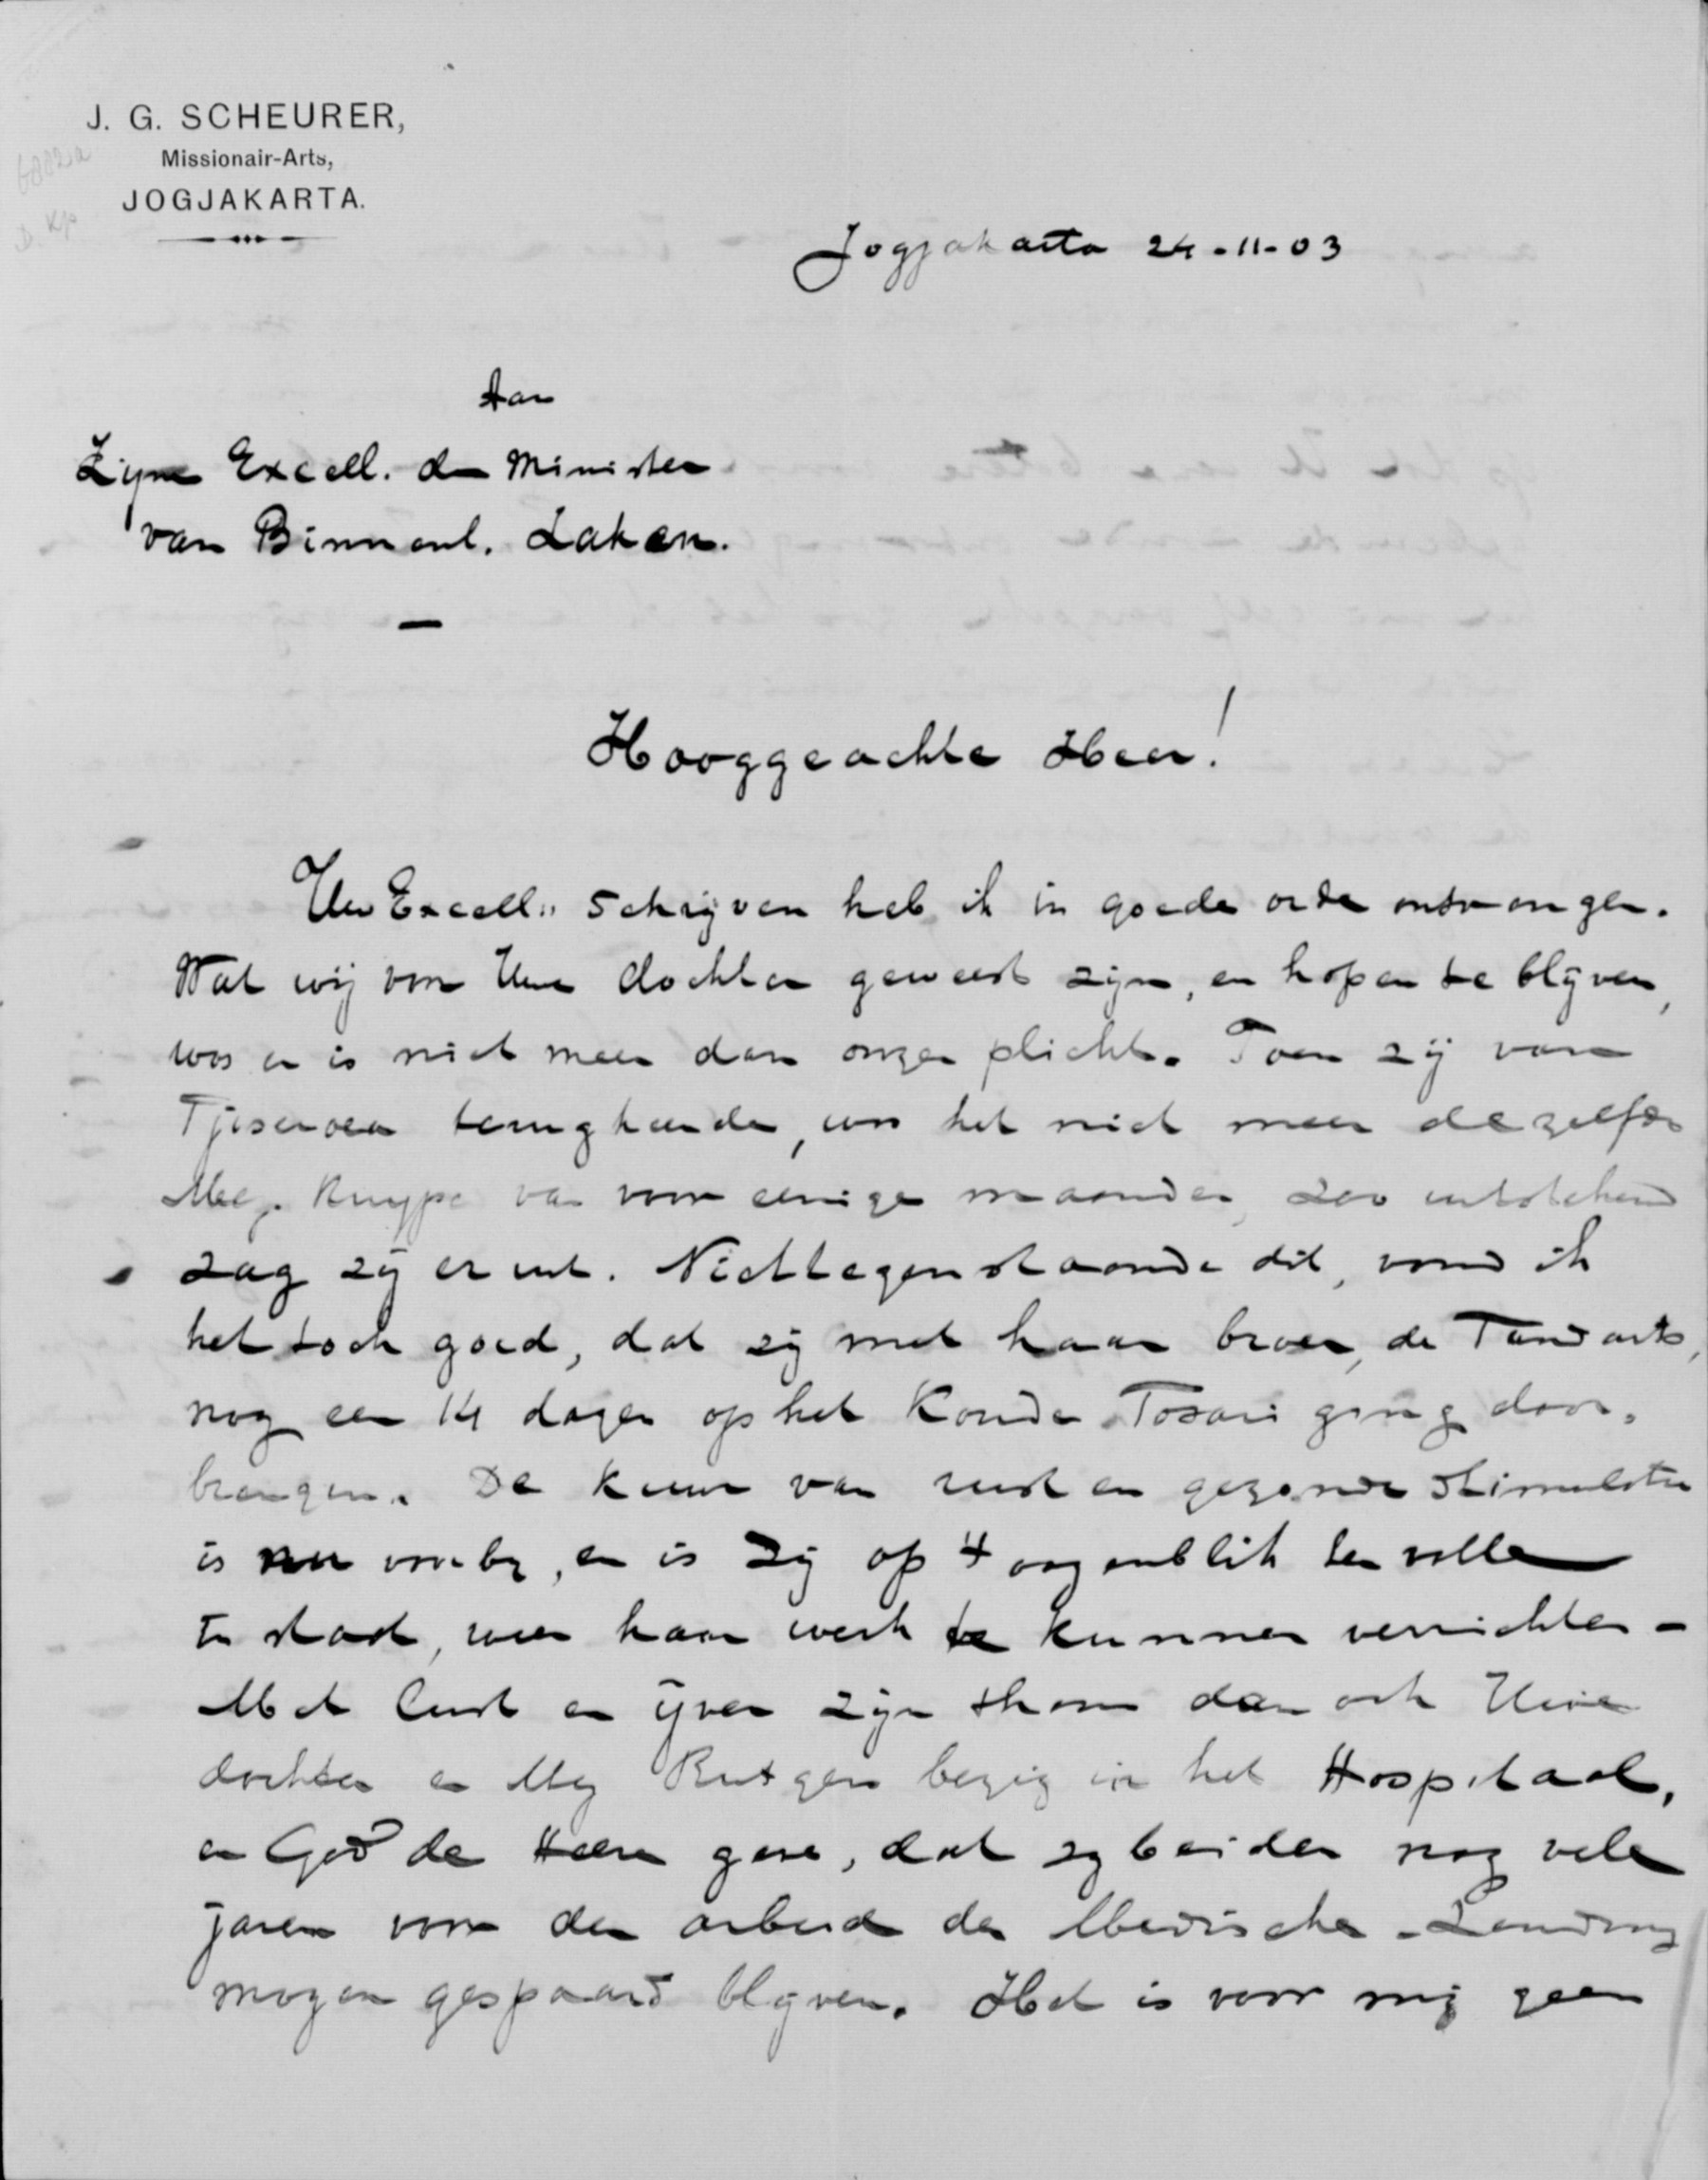 J. G. SCHEURER,
Missionair-Arts,
JOGJAKARTA.
Jogjakarta 24-11-03
Aan
Zijne Excell. den Minister
van Binnenl. Zaken.
Hooggeachte Heer!
Uw Excell's Schrijven heb ik in goede orde ontvangen.
Wat wij voor Uwe dochter geweest zijn, en hopen te blijven,
was en is niet meer dan onzer plicht. Toen zij van
Tjiseroea terugkeerde, was het niet meer dezelfde
Mej. Kuyper van voor eenige maanden, zoo uitstekend
zag zij er uit. Niettegenstaande dit, vond ik
het toch goed, dat zij met haar broer, de Tandarts,
nog een 14 dagen op het Koude Tosari ging door-
brengen. De kuur van rust en gezonde
is nu voorbij, en is zij op 't oogenblik ten volle
in staat, weer haar werk te kunnen verrichten -
Met lust en ijver zijn thans dan ook Uwe
dochter en Mej Rutgers bezig in het Hospitaal,
en God de Heere geve, dat zij beiden nog vele
jaren voor den arbeid der Medische Zending
mogen gespaard blijven. Het is voor mij geen